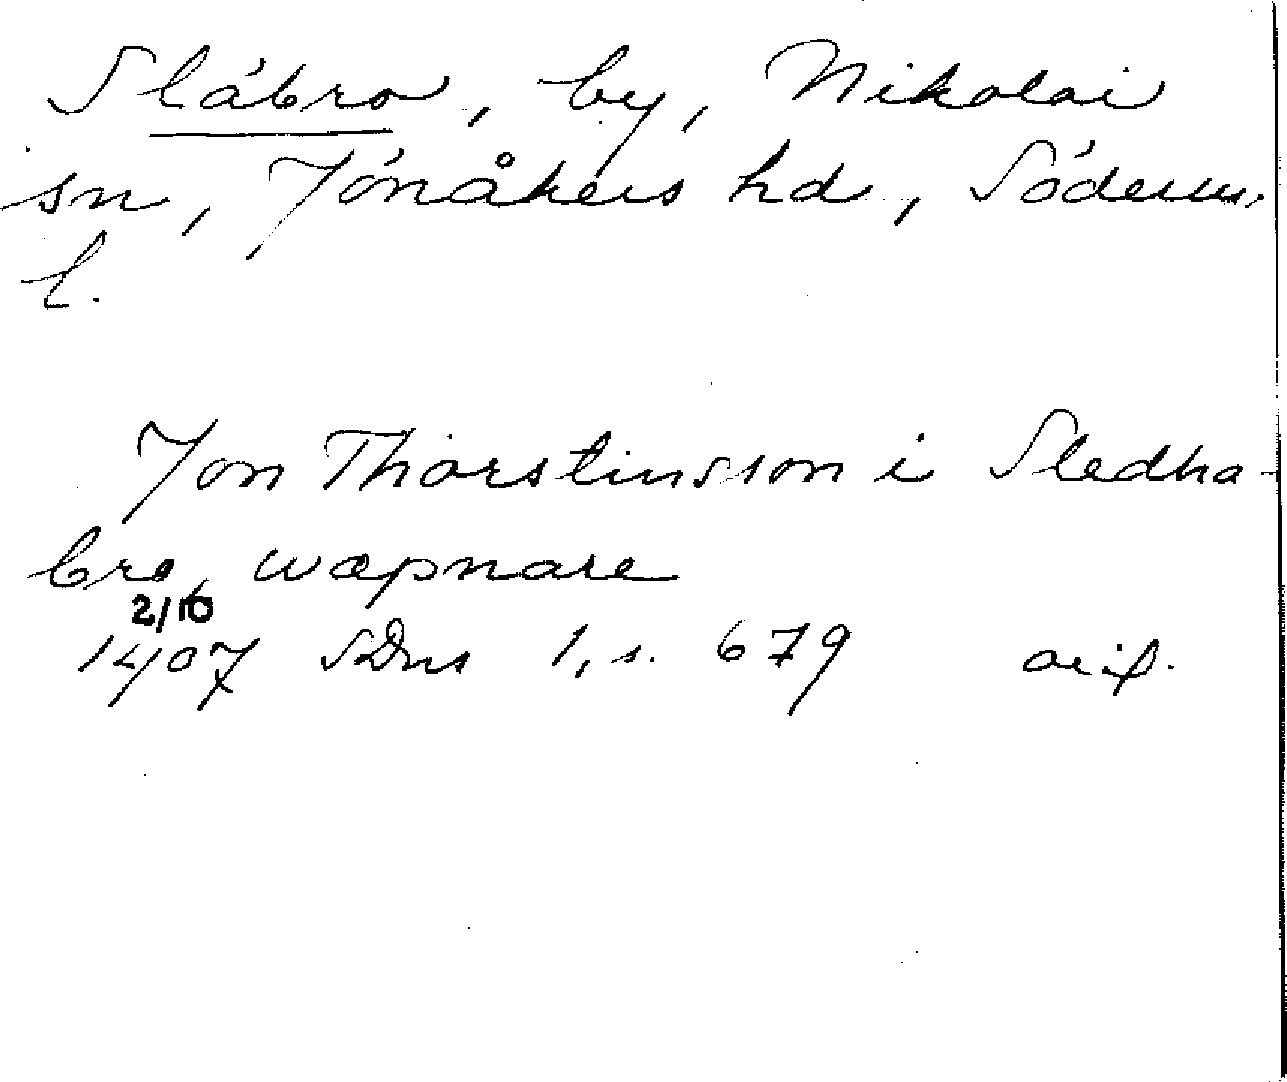 Släbro, by, Nikolai
sn, Jönåkers hd, Söderm.
l.
Jon Thorstinsson i Sledha-
bro, wæpnare
2/10
1407 SDns 1, s. 679 avs.